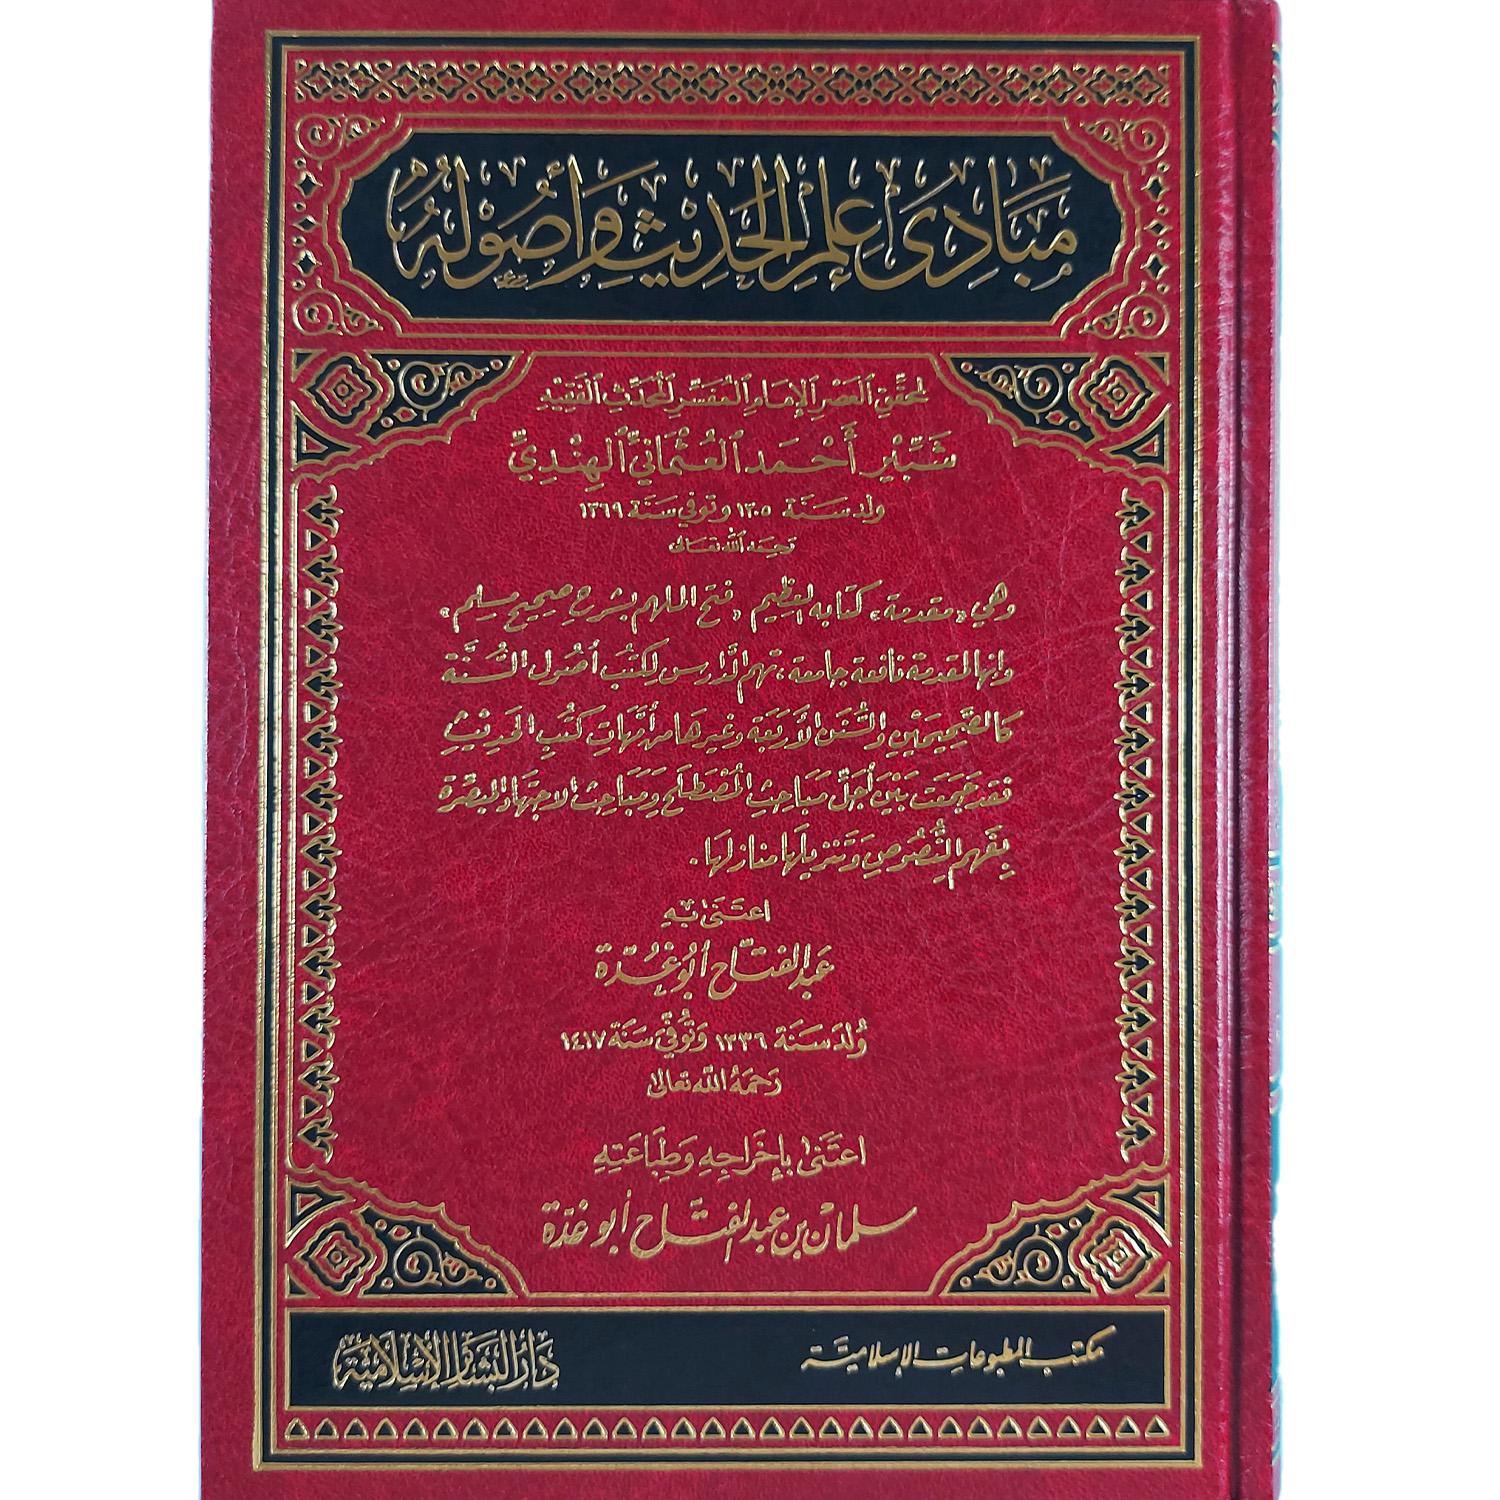 مَبَادِئ عِلْمِ الحَدِيْثِ وَأُصُوْلُهُ
لمحقّق العَصْر الإمَام المفَسِّر المحَدِّث الفَقِيه
شَبِّيْر أَحْمَد العُثْمَانيّ الهِنْدِيّ
ولد سَنَة ١٣٠٥ وتوفي سَنَة ١٣٦٩
رَحِمَهُ الله تعَالى
وهي «مقدمة» كتابه العظيم «فتح الملهم بشرح صحيح مسلم»
وإنها لمقدمة نافعة جامعة، تهم الدَّارس لكتُب أصُول السُّنَّة
كالصَّحِيحَيْنِ والسُّنَن الأَربَعَة وغيرهَا من أُمَّهَات كتُب الحَديثِ
فقد جَمَعَت بَيْن أجَلّ مبَاحِثِ المُصْطَلَح ومَبَاحِث الاجتهاد المبصِّرة
بفَهم النُّصُوص وتَنزيلهَا منازلهَا.
اعتَنىٰ بهِ
عَبد الفتّاح أبُو غُدّة
وُلد سَنَة ١٣٣٦ وَتُوفيّ سَنَة ١٤١٧
رَحمَهُ الله تعَالىٰ
اعتَنىٰ بإخرَاجِهِ وَطِبَاعَتِهِ
سلمان بن عبد الفتاح أبو غدّة
مكتب المطبوعات الإسلاميَّة
دَارُ البَشَائِر الإسْلَاميَّة